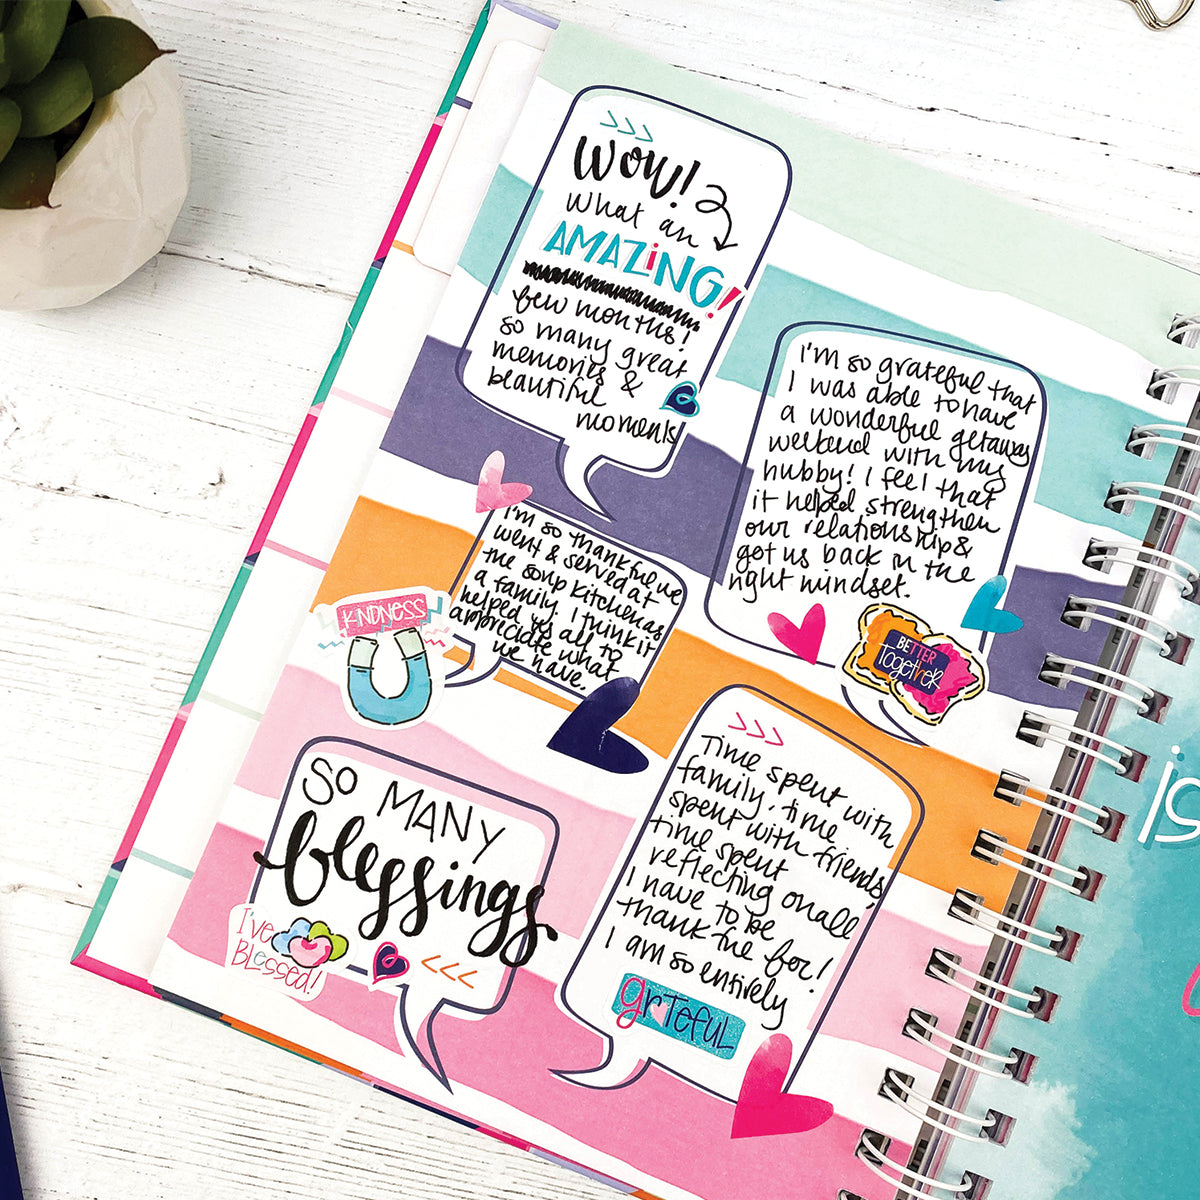 WOW!
what an
AMAZiNG!
few months!
so many great
memories &
beautiful
moments
I'm so grateful that
I was able to have
a wonderful getaway
weekend with my
hubby! I feel that
it helped strengthen
our relationship &
get us back in the
right mindset.
BETTER
TogetHER
I'm so thankful we
went & served at
the soup kitchen as
a family. I think it
helped us all to
appriciate what
we have.
KiNDNESS
SO MANY
blessings
I've
BLessed!
Time spent with
family, time
spent with friends,
time spent
reflecting on all
I have to be
thankful for!
I am so entirely
grTefuL
is